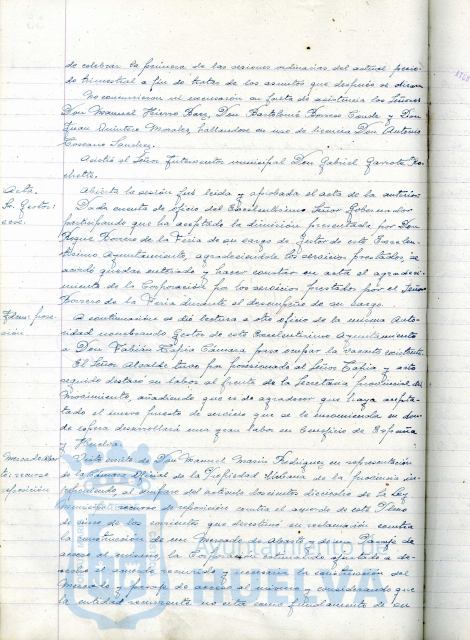 de celebrar la primera de las sesiones ordinarias del actual perio-
do trimestral a fin de tratar de los asuntos que después se dirán.
No concurrieron ni excusaron su falta de asistencia los Señores
Don Manuel Hierro Baez, Don Bartolomé Borrero Conde y Don
Juan Quintero Morales, hallándose en uso de licencia Don Antonio
Toscano Sanchez.
Asiste el Señor Interventor municipal Don Gabriel Garrote Ro-
Acta.
Abierta la sesión fué leida y aprobada el acta de la anterior.
Sr. Gestor:
Dada cuenta de oficio del Excelentísimo Señor Gobernador
participando que ha aceptado la dimisión presentada por Don
Roque Borrero de la Feria de su cargo de gestor de este Excelen-
tísimo Ayuntamiento, agradeciéndole los servicios prestados, se
acordó quedar enterado y hacer constar en acta el agradeci-
miento de la Corporación por los servicios prestados por el Señor
Borrero de la Feria durante el desempeño de su cargo.
Idem: pose-
sión.
A continuación se dió lectura a otro oficio de la misma Auto-
ridad nombrando Gestor de este Excelentísimo Ayuntamiento
a Don Fabián Tapia Cámara para ocupar la vacante existente.
El Señor Alcalde tuvo por posesionado al Señor Tapia y acto
seguido destacó su labor al frente de la Secretaría provincial del
Movimiento, añadiendo que es de agradecer que haya acepta-
tado el nuevo puesto de servicio que se le encomienda en don-
de espera desarrollará una gran labor en beneficio de España
y Huelva.
Mercado Abas-
to: recurso
reposición
Visto escrito de Don Manuel Marín Rodriguez en representación
de la Cámara Oficial de la Propiedad Urbana de la provincia in-
terponiendo, al amparo del artículo doscientos dieciocho de la Ley
municipal, recurso de reposición contra el acuerdo de este Pleno
de cinco de los corrientes que desestimó su reclamación contra
la construcción de un Mercado de Abasto y de un Pasaje de
acceso al mismo, la
acuerdo recurrido y necesaria la construcción del
Mercado y pasaje de acceso al mismo y considerando que
la entidad recurrente no cita como fundamento de su
Ayuntamiento de
HUELVA